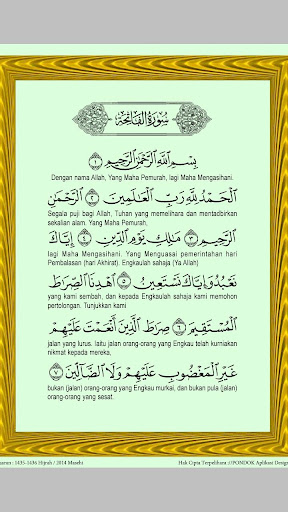 سُورَةُ الفَاتِحَةِ
بِسْمِ ٱللَّهِ ٱلرَّحْمَٰنِ ٱلرَّحِيمِ ١
Dengan nama Allah, Yang Maha Pemurah, lagi Maha Mengasihani.
ٱلْحَمْدُ لِلَّهِ رَبِّ ٱلْعَٰلَمِينَ ٢ ٱلرَّحْمَٰنِ
Segala puji bagi Allah, Tuhan yang memelihara dan mentadbirkan
sekalian alam. Yang Maha Pemurah,
ٱلرَّحِيمِ ٣ مَٰلِكِ يَوْمِ ٱلدِّينِ ٤ إِيَّاكَ
lagi Maha Mengasihani. Yang Menguasai pemerintahan hari
Pembalasan (hari Akhirat). Engkaulah sahaja (Ya Allah)
نَعْبُدُ وَإِيَّاكَ نَسْتَعِينُ ٥ ٱهْدِنَا ٱلصِّرَٰطَ
yang kami sembah, dan kepada Engkaulah sahaja kami memohon
pertolongan. Tunjukkan kepada kami
ٱلْمُسْتَقِيمَ ٦ صِرَٰطَ ٱلَّذِينَ أَنْعَمْتَ عَلَيْهِمْ
jalan yang lurus. Iaitu jalan orang-orang yang Engkau telah kurniakan
nikmat kepada mereka,
غَيْرِ ٱلْمَغْضُوبِ عَلَيْهِمْ وَلَا ٱلضَّآلِّينَ ٧
bukan (jalan) orang-orang yang Engkau murkai, dan bukan pula (jalan)
orang-orang yang sesat.
: 1435-1436 Hijrah / 2014 Masehi
Hak Cipta Terpelihara ://PONDOK Aplikasi Design